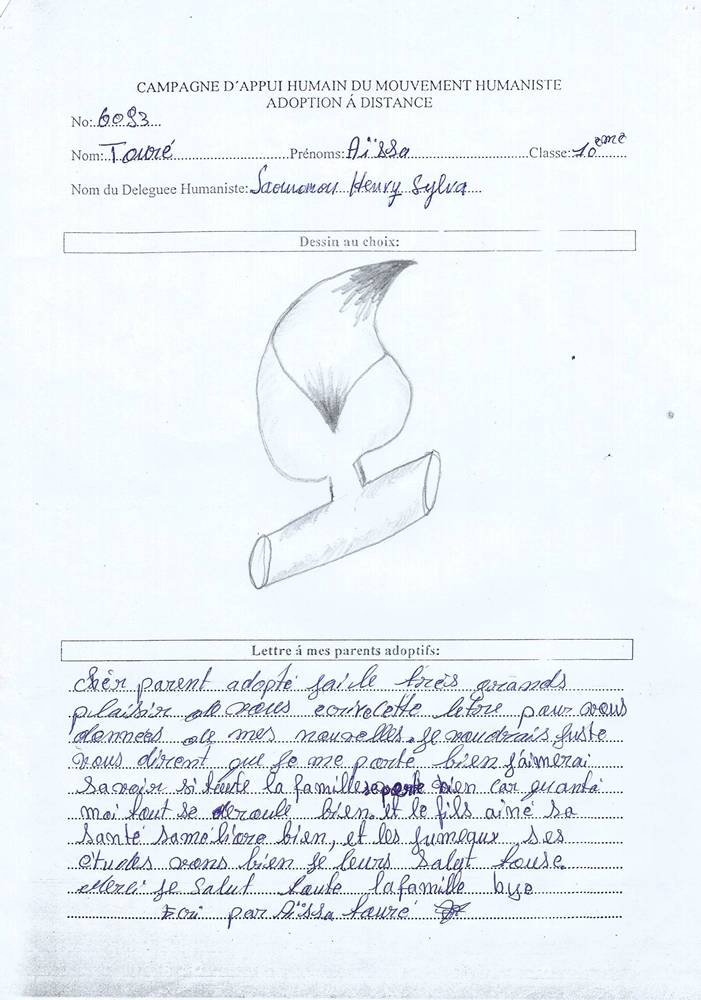 CAMPAGNE D´APPUI HUMAIN DU MOUVEMENT HUMANISTE
ADOPTION Á DISTANCE
No: 6093
Nom: Touré Prénoms: Aïssa Classe: 10ème
Nom du Deleguee Humaniste: Saoumomou Henry Sylva
Dessin au choix:
Lettre á mes parents adoptifs:
chèr parent adopté j'ai le très grands
plaisir de vous ecrivelette lettre pour vous
donnees de mes nouvelles. Je voudrais juste
vous dirent que je me porte bien j'aimerai
Savoir si toute la famille se porte bien car quant à
moi tout se deroule bien. et le fils ainé sa
Santé saméliore bien, et les jumeaux ses
études vons bien je leurs Salut touse.
Merci je Salut toute la famille bye
Ecri par Aïssa touré